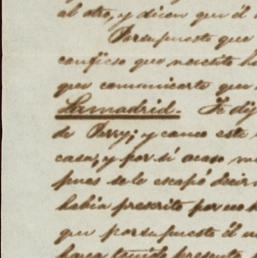 al otro, y dicen que él
Por supuesto que
confieso que necesito
que comunicarte que
Lamadrid. Te dij
de Perry; y como este
casa, y por si acaso
pues se le escapó decir
había prescrito por no
que por supuesto él